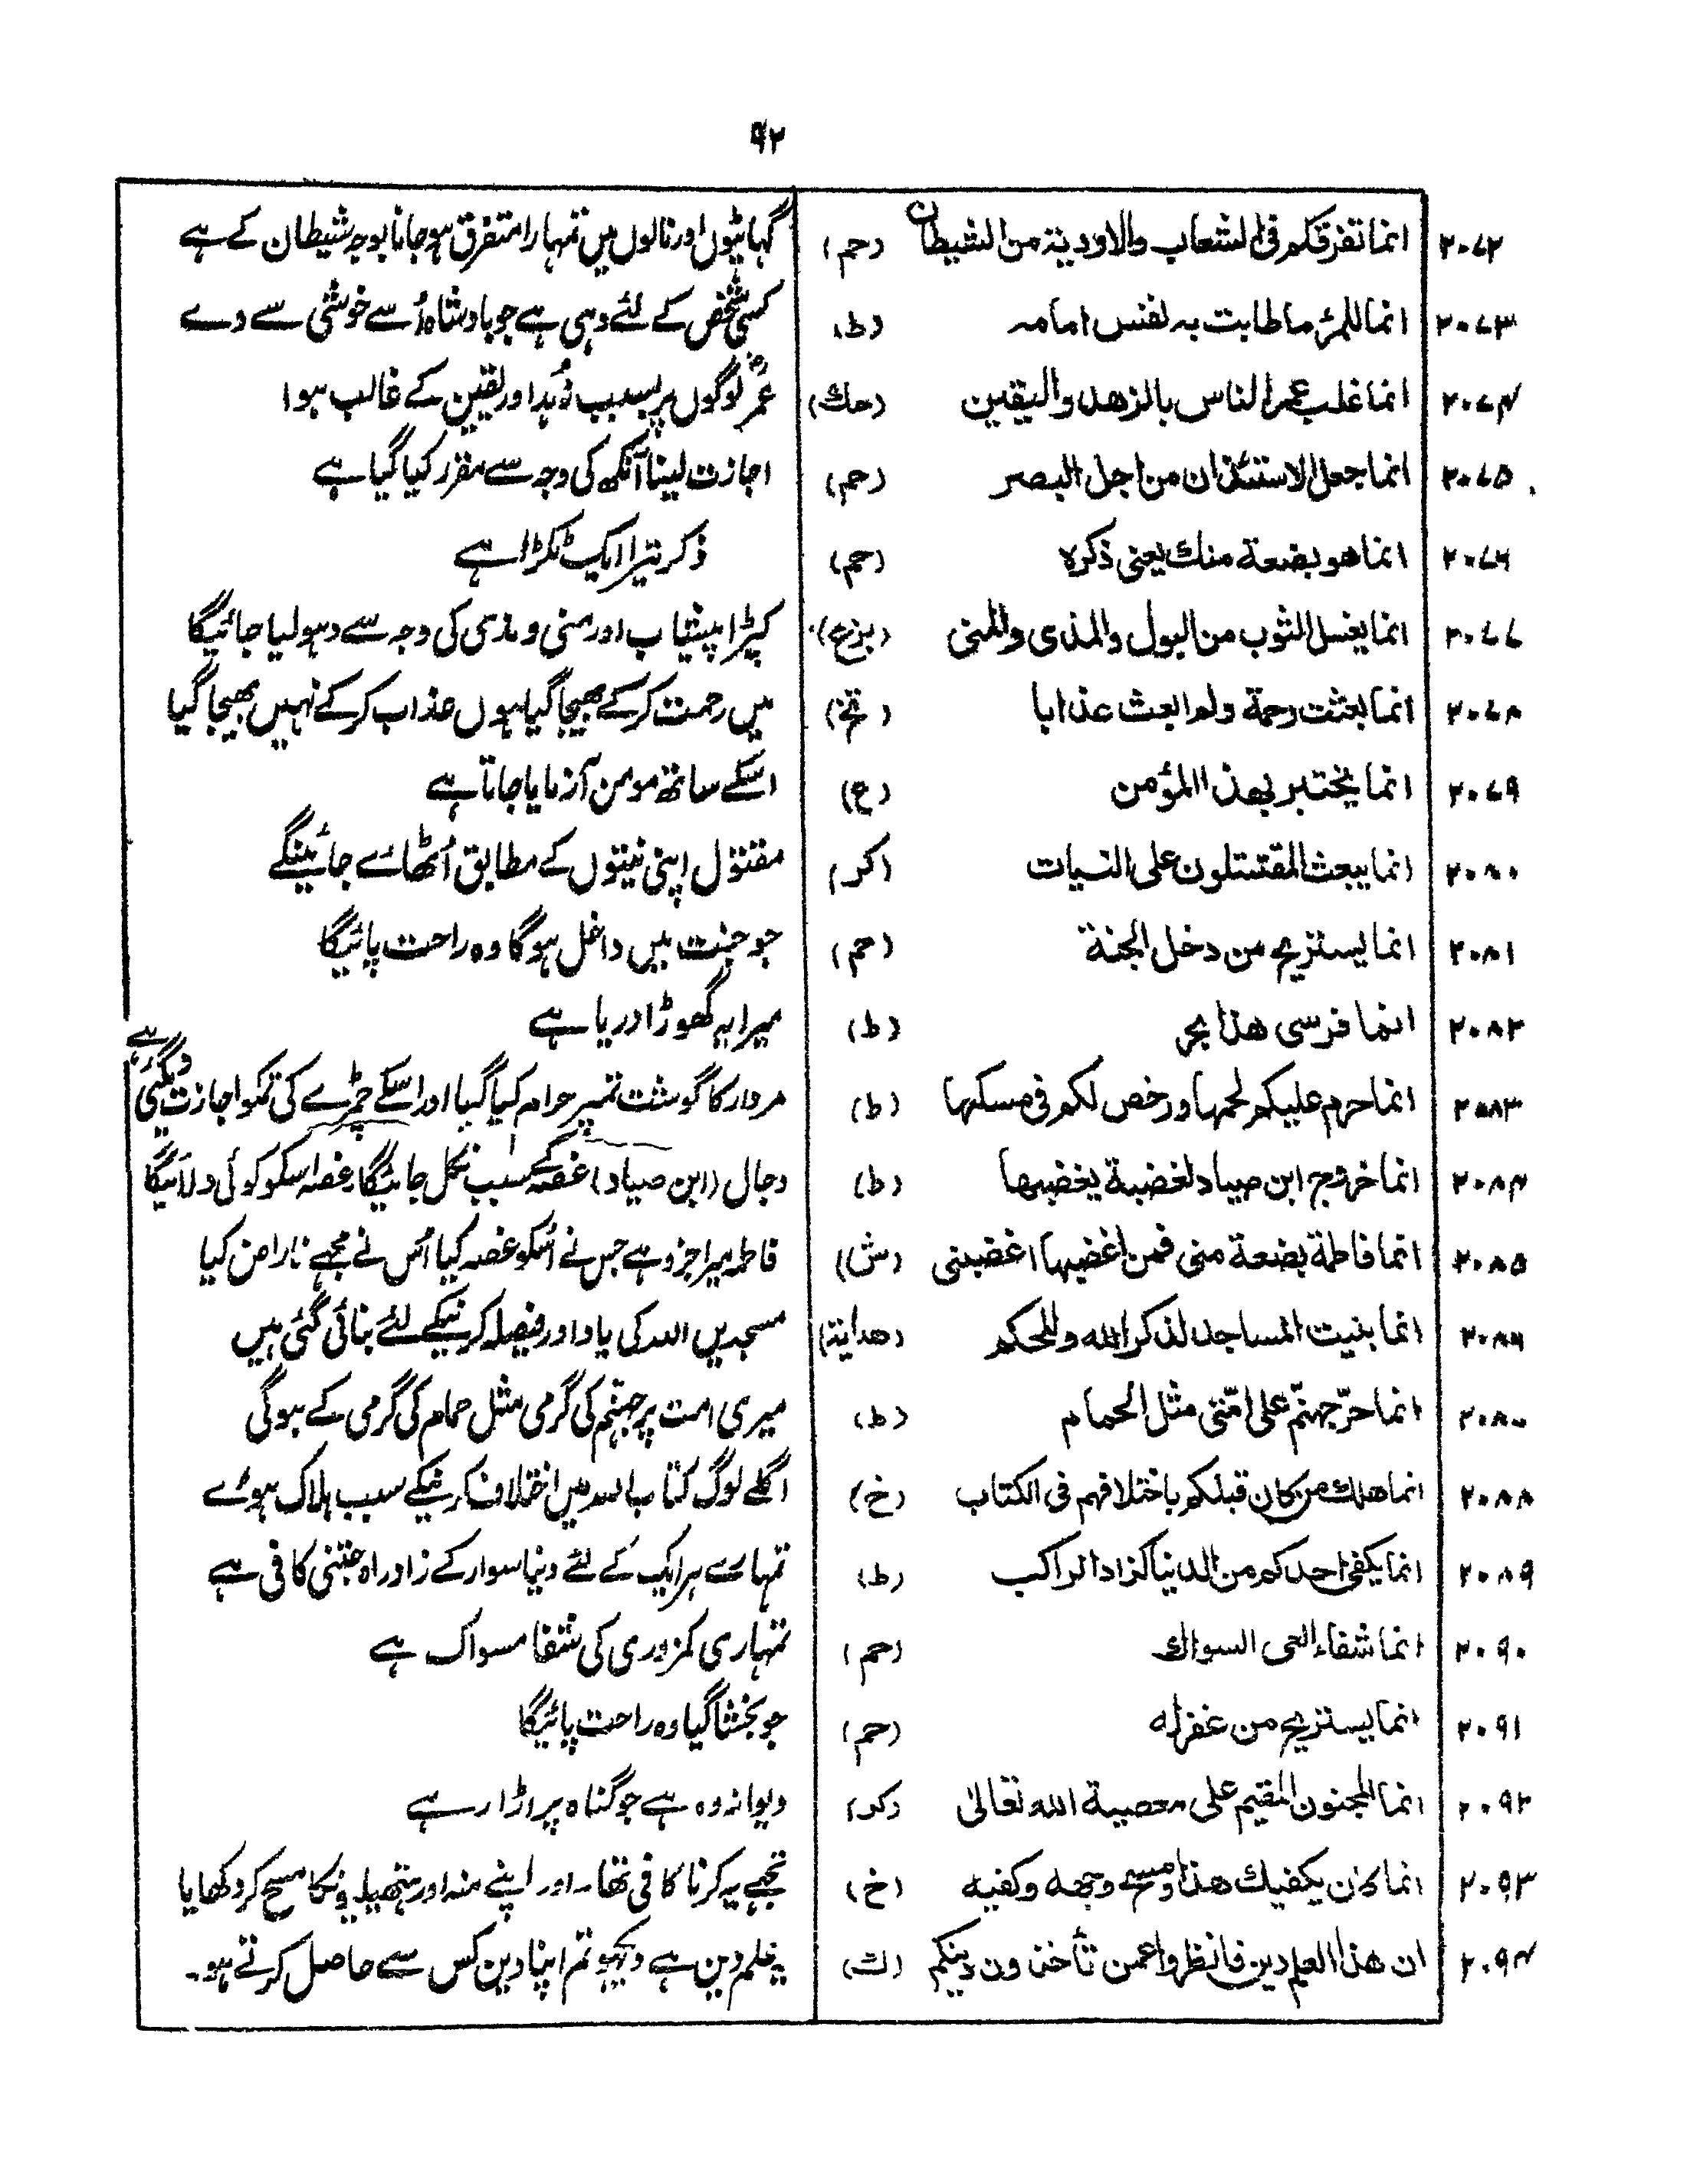 ۹۲
۲۰۷۲ انما تفرقكم فی الشعاب والاودیة من الشیطان (حم) گہاٹیوں اور نالوں میں تمہارا متفرق ہو جانا بوجہ شیطان کے ہے
۲۰۷۳ انما للمرء ما طابت به نفس امامه (ط) کسی شخص کے لئے وہی ہے جو بادشاہ اُسے خوشی سے دے
۲۰۷۴ انما غلب عمر الناس بالزهد والیقین (حك) عمرؓ لوگوں پر بسبب زُہد اور یقین کے غالب ہوا
۲۰۷۵ انما جعل الاستئذان من اجل البصر (حم) اجازت لینا آنکھ کی وجہ سے مقرر کیا گیا ہے
۲۰۷۶ انما هو بضعة منك یعنی ذكره (حم) ذکر تیرا ایک ٹکڑا ہے
۲۰۷۷ انما یغسل الثوب من البول والمذی والمنی (بزع) کپڑا پیشاب اور منی و مذی کی وجہ سے دہو لیا جائیگا
۲۰۷۸ انما بعثت رحمة ولم ابعث عذابا (تخ) میں رحمت کر کے بھیجا گیا ہوں عذاب کر کے نہیں بھیجا گیا
۲۰۷۹ انما یختبر بهذا المؤمن (ع) اسکے ساتھ مومن آزمایا جاتا ہے
۲۰۸۰ انما یبعث المقتتلون علی النیات (كر) مقتول اپنی نیتوں کے مطابق اُٹھائے جائینگے
۲۰۸۱ انما یستریح من دخل الجنة (حم) جو جنت میں داخل ہوگا وہ راحت پائیگا
۲۰۸۲ انما فرسی هذا بحر (ط) میرا یہ گھوڑا دریا ہے
۲۰۸۳ انما حرم علیكم لحمها ورخص لكم فی مسكها (ط) مردار کا گوشت تمپر حرام کیا گیا اور اسکے چمڑے کی تمکو اجازت دیگئی ہے
۲۰۸۴ انما خروج ابن صیاد لغضبة یغضبها (ط) دجال (ابن صیاد) غصہ کے سبب نکل جائیگا غصہ اسکو کوئی دلائیگا
۲۰۸۵ انما فاطمة بضعة منی فمن اغضبها اغضبنی (ش) فاطمہ میرا جزو ہے جس نے اُسکو غصہ کیا اُس نے مجھے ناراض کیا
۲۰۸۶ انما بنیت المساجد لذكر الله والحكم (هدایة) مسجدیں اللہ کی یاد اور فیصلہ کرنیکے لئے بنائی گئی ہیں
۲۰۸۷ انما حرّ جهنّم علی امّتی مثل الحمام (ط) میری امت پر جہنّم کی گرمی مثل حمام کی گرمی کے ہوگی
۲۰۸۸ انما هلك من كان قبلكم باختلافهم فی الكتاب (خ) اگلے لوگ کتاب اللہ میں اختلاف کرنیکے سبب ہلاک ہوئے
۲۰۸۹ انما یكفی احدكم من الدنیا كزاد الراكب (ط) تمہارے ہر ایک کے لئے دنیا سوار کے زاد راہ جتنی کافی ہے
۲۰۹۰ انما شفاء العی السواك (حم) تمہاری کمزوری کی شفا مسواک ہے
۲۰۹۱ انما یستریح من غفر له (حم) جو بخشا گیا وہ راحت پائیگا
۲۰۹۲ انما المجنون المقیم علی معصیة الله تعالیٰ (كر) دیوانہ وہ ہے جو گناہ پر اڑا رہے
۲۰۹۳ انما كان یكفیك هذا ومسح وجهه وكفیه (خ) تجھے یہ کرنا کافی تھا۔ اور اپنے منہ اور ہتھیلیونکا مسح کر دکھایا
۲۰۹۴ ان هذا العلم دین فانظروا عمن تأخذون دینكم (ك) یہ علم دین ہے دیکھو تم اپنا دین کس سے حاصل کرتے ہو۔